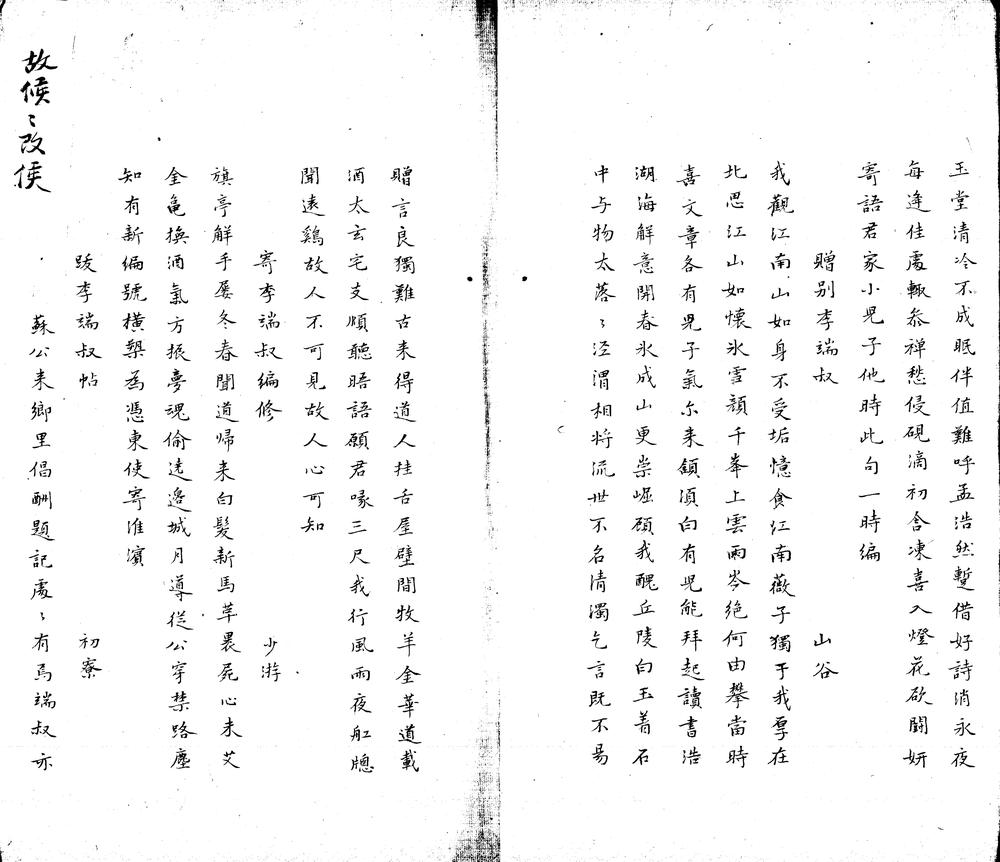 玉堂清冷不成眠伴值難呼孟浩然蹔借好詩消永夜
每逢佳處輙叅禅愁侵硯滴初含凍喜入燈花欲鬪妍
寄語君家小兒子他時此句一時編
贈别李端叔 山谷
我觀江南山如身不受垢憶食江南薇子獨于我厚在
北思江山如懷氷雪顏千峯上雲雨岑絶何由攀當時
喜文章各有兒子氣尓来鎖湏白有兒能拜起讀書浩
湖海解意開春氷成山更崇崛顧我醜丘陵白玉着石
中与物太落〻涇渭相将流世不名清濁乞言既不易
贈言良獨難古来得道人挂舌屋壁間牧羊金華道載
酒太玄宅支頤聽晤語願君喙三尺我行風雨夜舡牕
聞遠鷄故人不可見故人心可知
寄李端叔編修 少游
旗亭解手屡冬春聞道帰来白髮新馬革裹屍心未艾
金亀換酒氣方振夢魂偷逺邉城月導從公穿禁路塵
知有新編號橫槊爲憑東使寄淮濱
跋李端叔帖 初寮
蘇公来鄉里倡酬題記處〻有焉端叔亦
故候〻改侯